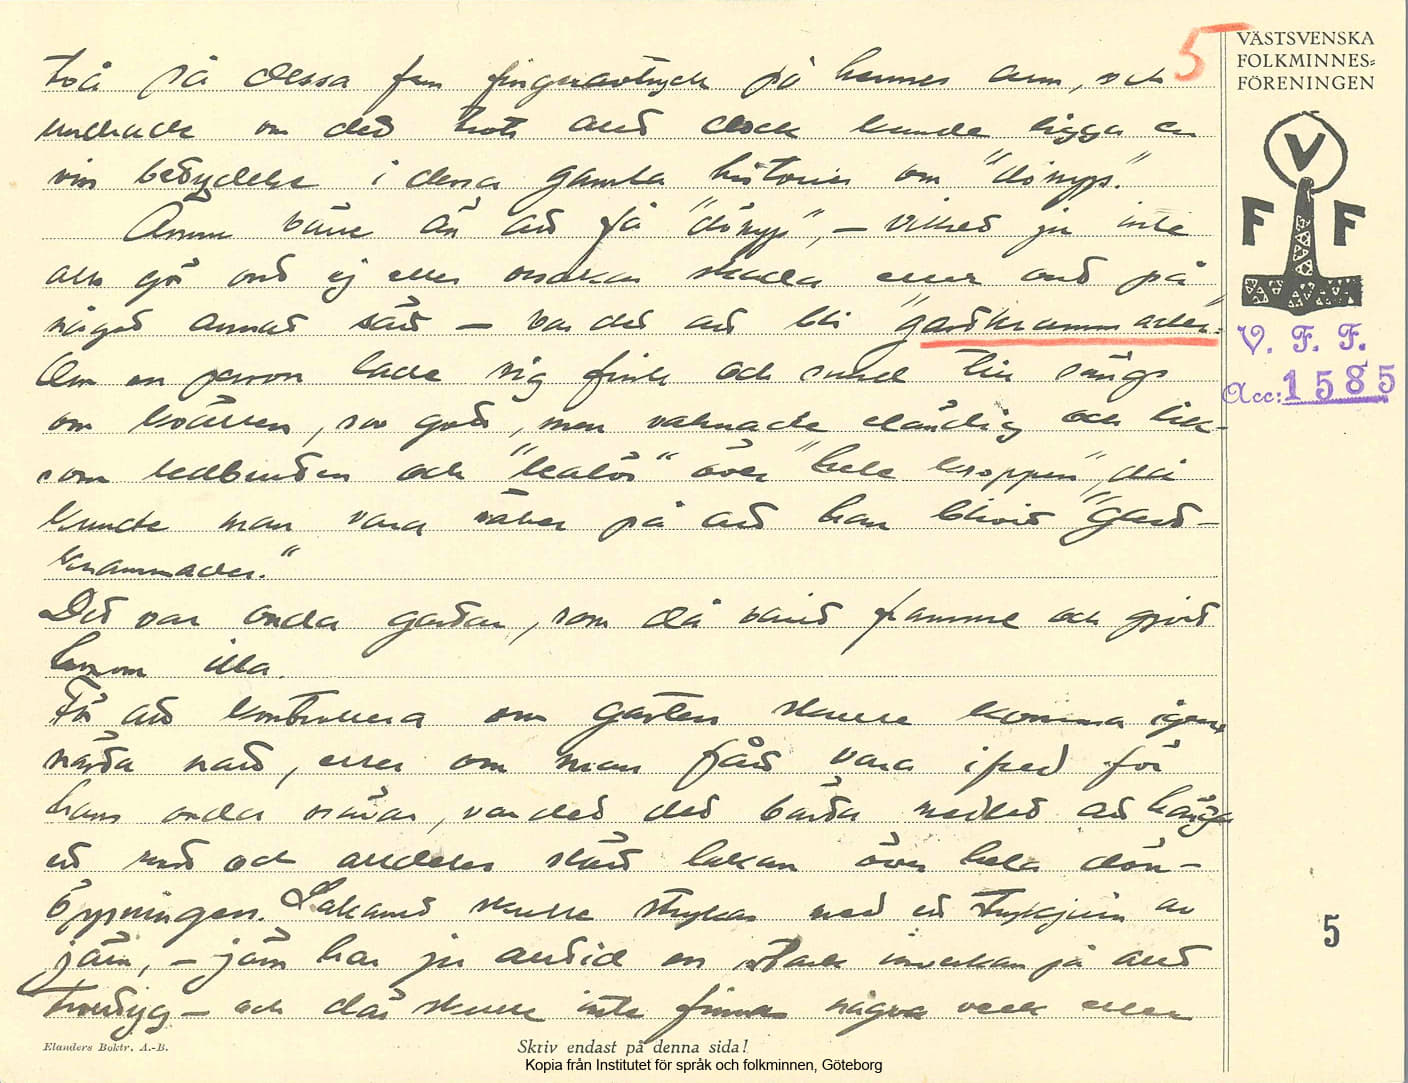 5
VÄSTSVENSKA
FOLKMINNES-
FÖRENINGEN
V
F F
V. F. F.
Acc: 1585
två på dessa fem fingeravtryck på hennes arm, och
undrade om det trots allt dock kunde ligga en
viss betydelse i dessa gamla historier om "dönyp".
Ännu värre än att få "dönyp", – vilket ju inte
alls gör ont ej eller orsakar skada eller ont på
något annat sätt – var det att bli "gastkrammader".
Om en person lade sig frisk och sund till sängs
om kvällen, sov gott, men vaknade eländig och lik-
som ledbruten och "lealös" över "hela kroppen", då
kunde man vara säker på att han blivit "gast-
krammader."
Det var onda gastar, som då varit framme och gjort
honom illa.
För att kontrollera om gasten skulle komma igen
nästa natt, eller om man fått vara ifred för
hans onda nävar, var det det bästa medlet att hänga
ett rent och alldeles slätt lakan över hela dörr-
öppningen. Lakanet skulle strykas med ett strykjärn av
järn, – järn har ju alltid en stark inverkan på allt
trolltyg – och där skulle inte finnas några veck eller
5
Elanders Boktr. A.-B.
Skriv endast på denna sida!
Kopia från Institutet för språk och folkminnen, Göteborg